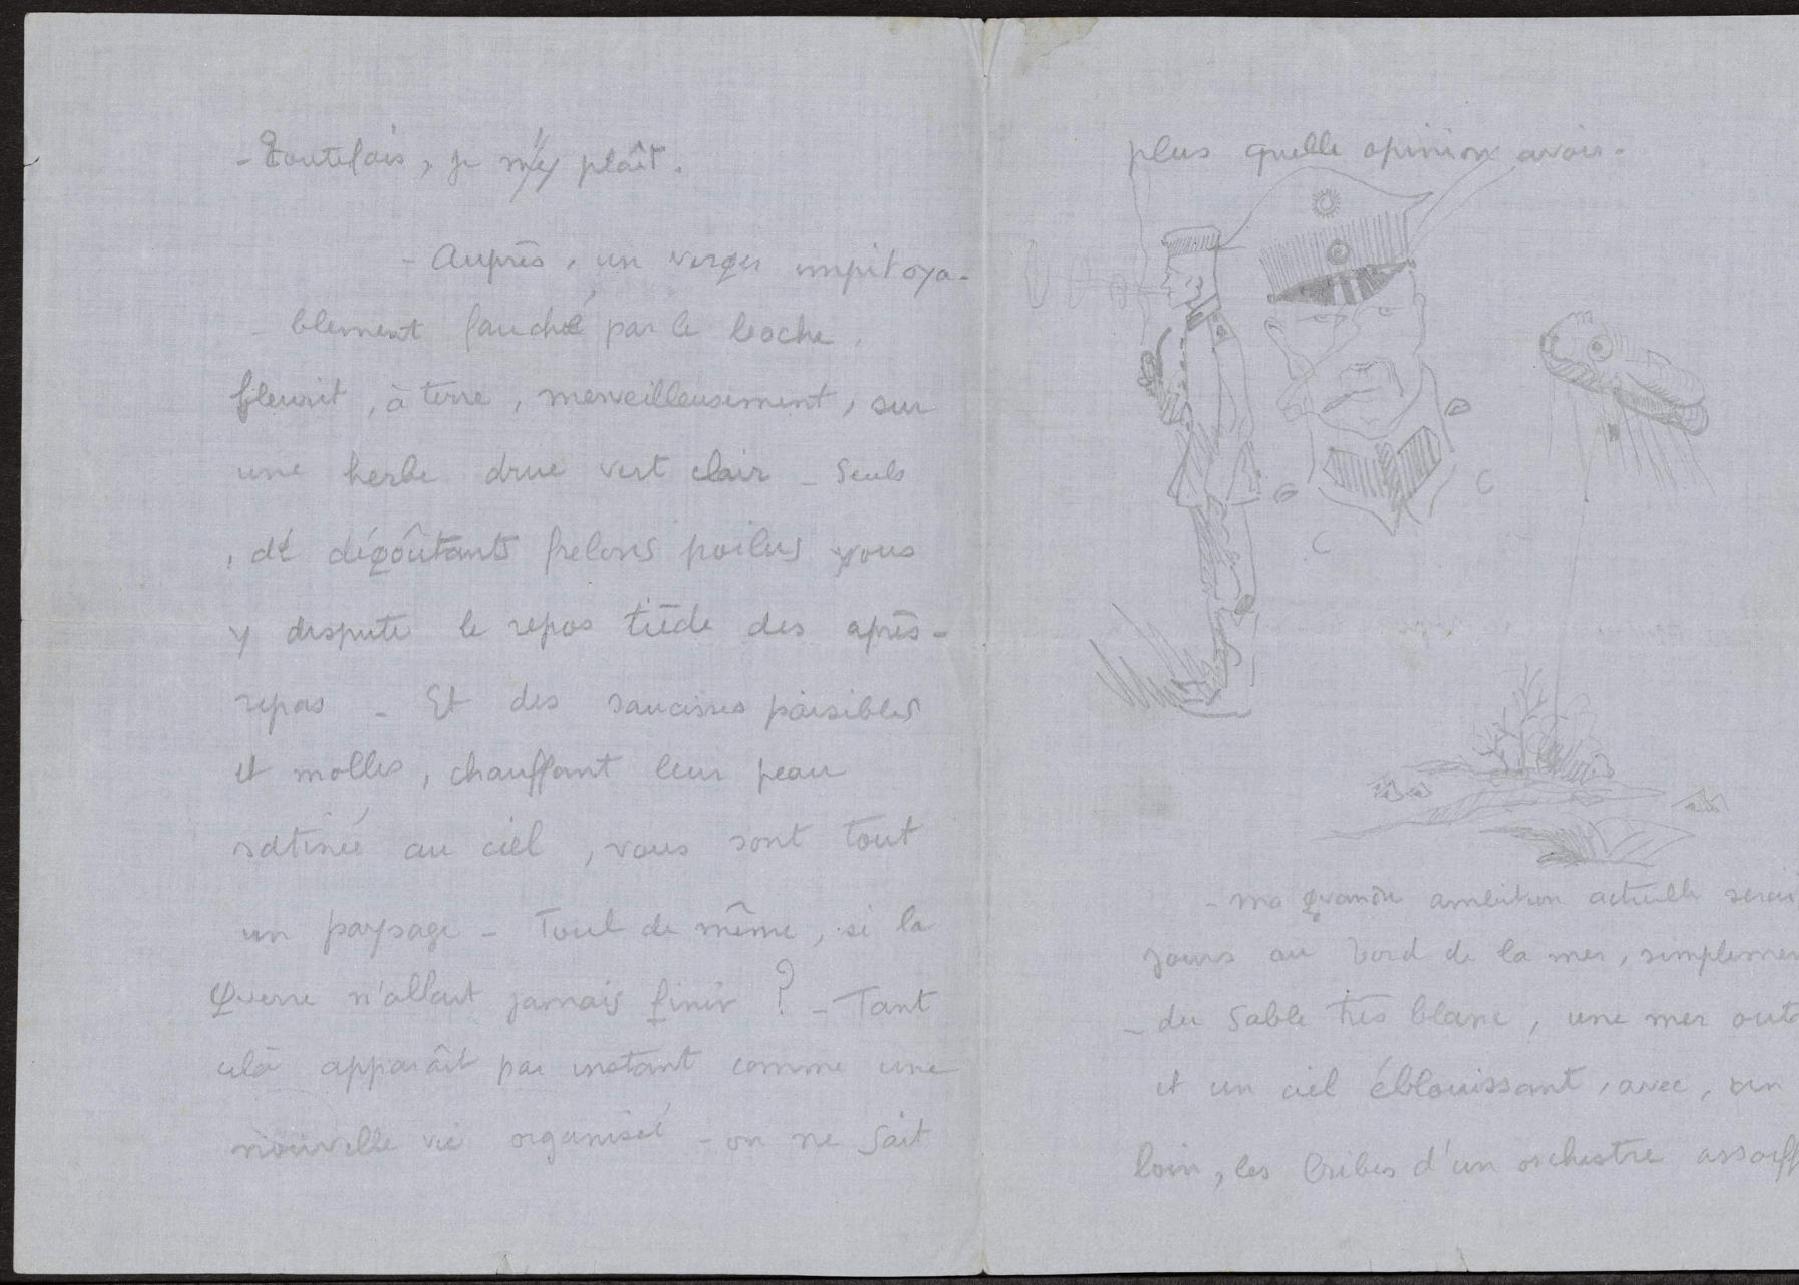 - Toutefois, je m'y plaît.
- Auprès, un verger impitoya-
- blement fauché par le boche,
fleurit, à terre, merveilleusement, sur
une herbe drue vert clair - Seuls
, de dégoûtants frelons poilus vous
y dispute le repos tiède des après-
repas - Et des saucisses paisibles
et molles, chauffant leur peau
satinée au ciel, vous sont tout
un paysage - Tout de même, si la
Guerre n'allait jamais finir ? - Tant
celà apparaît par instant comme une
nouvelle vie organisée - on ne sait
plus quelle opinion avoir.
C
C
- ma grande ambition actuelle serait
jours au bord de la mer, simplemen
- du sable très blanc, une mer outr
et un ciel éblouissant, avec, au
loin, les bribes d'un orchestre assouff